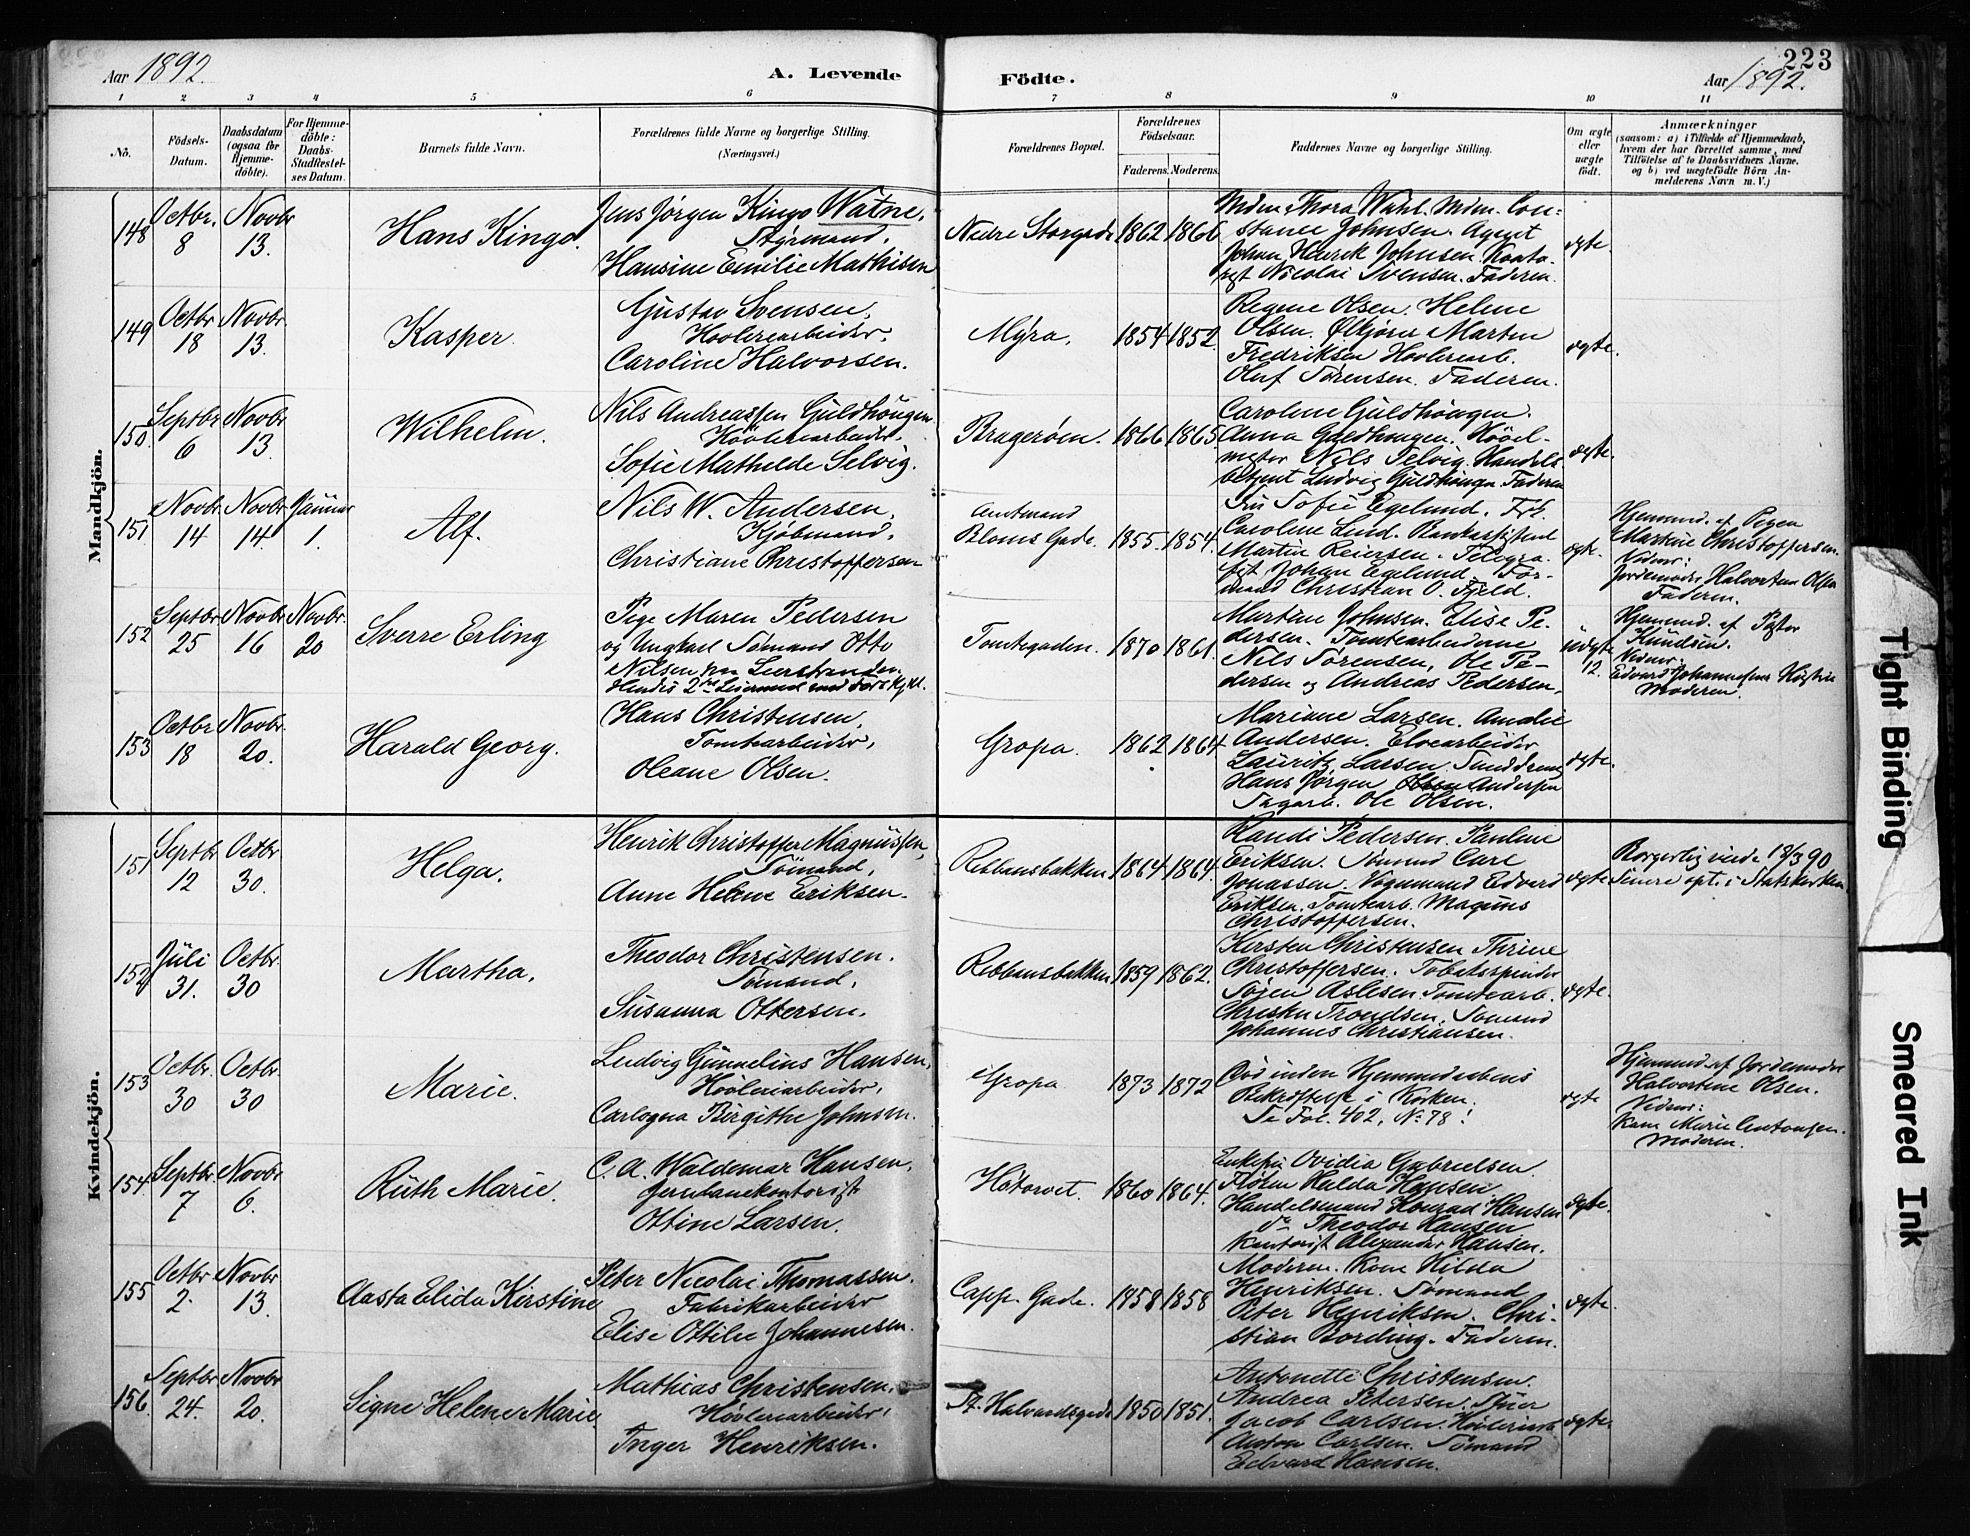 Aar 1892.
A. Levende
Födte.
223
Aar 1892.
1 2 3 4 5 6 7 8 9 10 11
No.
Födsels-Datum.
Daabsdatum (ogsaa for Hjemmedöbte).
For Hjemmedöbte: Daabs-Stadfæstelses Datum.
Barnets fulde Navn.
Forældrenes fulde Navne og borgerlige Stilling. (Næringsvei.)
Forældrenes Bopæl.
Forældrenes Födselsaar.
Faderens. Moderens.
Faddernes Navne og borgerlige Stilling.
Om ægte eller uægte födt.
Anmærkninger
(saasom: a) i Tilfælde af Hjemmedaab, hvem der har forrettet samme, med Tilföielse af to Daabsvidners Navne, og b) ved uægtefödte Börn Anmelderens Navn m. V.)
Mandkjön.
148 Octbr. 8 Novbr 13. Hans Kingo.
Jens Jørgen Kingo Watne,
Styrmand,
Hansine Emilie Mathisen
Nedre Storgade 1862 1866
Mdm. Thora Wahl. Mdm. Con-
stance Johnsen. Agent
Johan Henrik Johnsen. Konto-
rist Nicolai Svensen. Faderen.
ægte.
149 Octbr 18 Novbr. 13. Kasper.
Gustav Svensen,
Høvleriarbeider,
Caroline Halvorsen.
Myra. 1854 1852.
Regine Olsen. Helene
Olsen. Ølkjører Martin
Fredriksen Høvleriarb.
Oluf Sørensen. Faderen.
ægte.
150. Septbr 6 Novbr 13. Wilhelm.
Nils Andreassen Guldhaugen
Høvleriarbeider,
Sofie Mathilde Selvig.
Bragerøen. 1866 1865.
Caroline Guldhaugen.
Anna Guldhaugen. Høvel-
mester Nils Selvig. Handels-
betjent Ludvig Guldhaugen. Faderen
ægte.
151 Novbr. 14 Novbr. 14. Januar 1. Alf.
Nils W. Andersen,
Kjøbmand,
Christiane Christoffersen
Amtmand
Bloms Gade. 1855. 1854.
Fru Sofie Egelund. Frk.
Caroline Lund. Bankassistent
Martin Reiersen. Telegra-
fist Johan Egelund. For-
mand Christian O. Fjeld.
ægte.
Hjemmed. af Pigen
Martine Christoffersen.
Vidner:
Jordemoder Halvortine Olsen
Faderen.
152 Septbr 25 Novbr 16 Novbr. 20 Sverre Erling
Pige Maren Pedersen
og Ungkarl Sømand Otto
Nilsen fra Lierstranden.
Hendes 2det Leiermaal
Tomtegaden. 1870 1861.
Martine Johnsen. Elise Pe-
dersen. Tomtearbeiderne
Nils Sørensen, Ole Pe-
dersen og Andreas Pedersen,
uægte 12.
Hjemmed. af Pastor
Knudsen.
Vidner:
Edvard Johannesens Hustru
Moderen.
153 Octbr 18 Novbr. 20. Harald Georg.
Hans Christensen,
Tomtearbeider,
Oleane Olsen.
Gropa. 1862 1864.
Mariane Larsen. Amalie
Andersen. Elvearbeider
Lauritz Larsen.
Hans Jørgen Andersen
Sagarb. Ole Olsen.
ægte.
Kvindekjön.
151 Septbr 12 Octbr 30. Helga.
Henrik Christoffer Magnussen,
Sømand,
Anne Helene Eriksen.
Rebbansbakken 1864 1864.
Randi Pedersen. Pauline
Eriksen. Sømand Carl
Jonassen. Vognmand Edvard
Eriksen. Tomtearb. Magnus
Christoffersen.
ægte
Borgerlig viede 18/3 90
Senere opt. i Statskirken
152 Juli 31. Octbr. 30 Martha.
Theodor Christensen.
Sømand,
Susanna Ottersen.
Rebbansbakken 1859 1862.
Kirsten Christensen Thrine
Christoffersen. Tobaksspinder
Søren Aslesen. Tomtearb.
Christian Trondsen. Sømand
Johannes Christiansen.
ægte.
153 Octbr. 30 Octbr. 30 Marie.
Ludvig Gunnelius Hansen,
Høvleriarbeider,
Birgithe Johnsen.
Gropa 1873 1872
Død inden Hjemmedaabens
Bekræftelse i Kirken.
Se Fol. 402, No 78!
ægte
Hjemmed af Jordemoder
Halvortine Olsen.
Vidner:
Kone Marie Antonsen.
Moderen.
154. Septbr. 7 Novbr 6. Ruth Marie.
C. A. Waldemar Hansen,
Jernbanekontorist
Ottine Larsen.
Høtorvet. 1860 1864.
Enkefru Ovidia Gabrielsen
Frøken Hulda Hansen
Handelsmand Konrad Hansen
do Theodor Hansen
Kontorist Alexander Hansen.
ægte.
155 Octbr 2. Novbr. 13. Aasta Elida Kirstine
Peter Nicolai Thomassen.
Fabrikarbeider
Elise Ottilie Johannesen.
Capp. Gade. 1858 1858
Moderen. Kone Hilda
Henriksen. Sømand
Peter Henriksen. Chri-
stian Bording. Faderen.
ægte.
156. Septbr 24. Novbr 20. Signe Helene Marie
Mathias Christensen,
Høvleriarbeider,
Inger Henriksen.
St. Halvardsgade 1850 1851.
Antonette Christensen.
Andrea Petersen.
Jacob Carlsen. Høvleriarb.
Anton Carlsen. Sømand
Edvard Hansen.
ægte.
Tight Binding
Smeared Ink